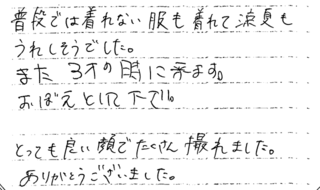 普段では着れない服も着れて涼夏も
うれしそうでした。
また 3才の時に来ます。
おぼえといて下さい。
とっても良い顔でたくさん撮れました。
ありがとうございました。